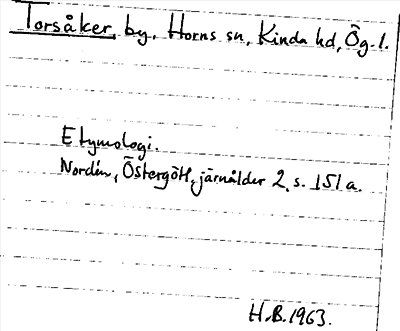 Torsåker, by, Horns sn, Kinda hd, Ög. l.
Etymologi.
Nordén, Östergötl. järnålder 2, s. 151 a.
H.B. 1963.